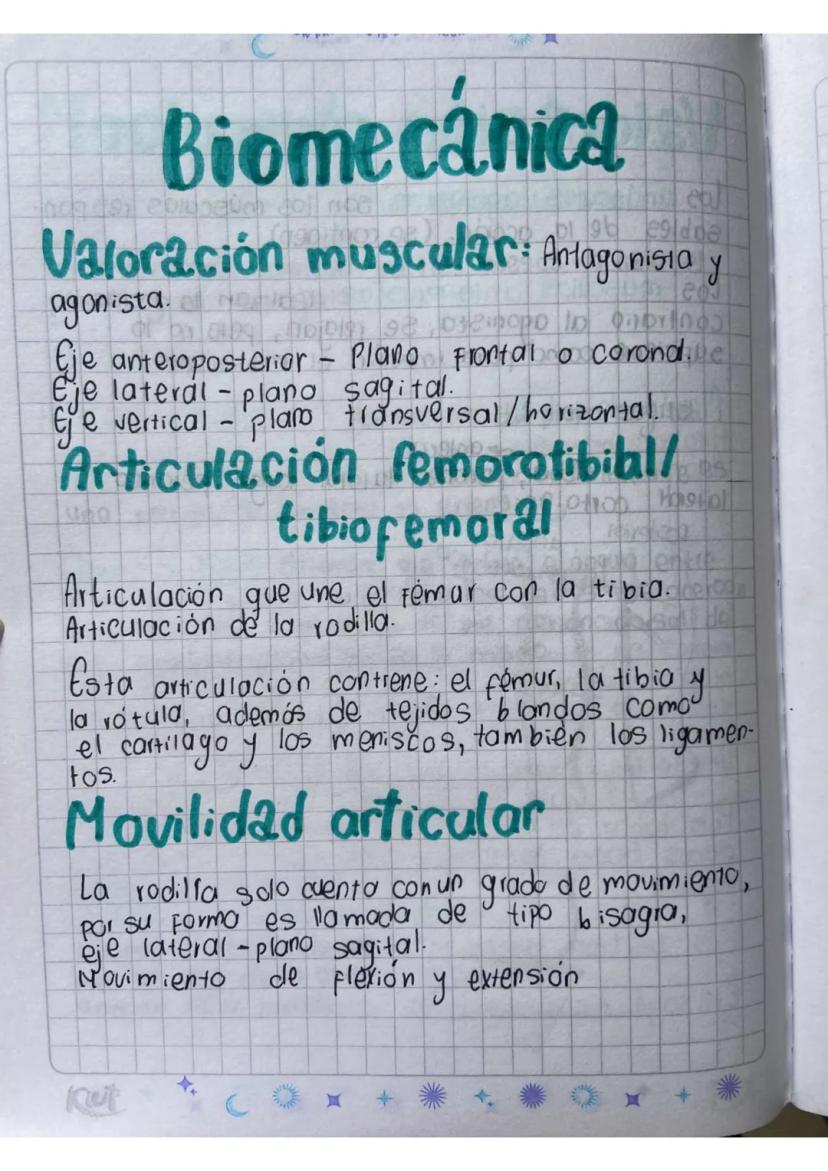 Biomecánica
Valoración muscular: Antagonista y
agonista.
Eje anteroposterior - Plano Frontal o corond.
Eje lateral - plano sagital.
Eje vertical - plano transversal/horizontal.
Articulación femorotibial/
tibiofemoral
Articulación que une el Fémur con la tibia.
Articulación de la rodilla.
Esta articulación contiene: el fémur, la tibia y
la rótula, además de tejidos blandos como
el cartílago y los meniscos, también los ligamen-
tos.
Movilidad articular
La rodilla solo cuenta con un grado de movimiento,
por su Forma es llamada de tipo bisagra,
eje lateral - plano sagital.
Movimiento de flexión y extensión
Kiut